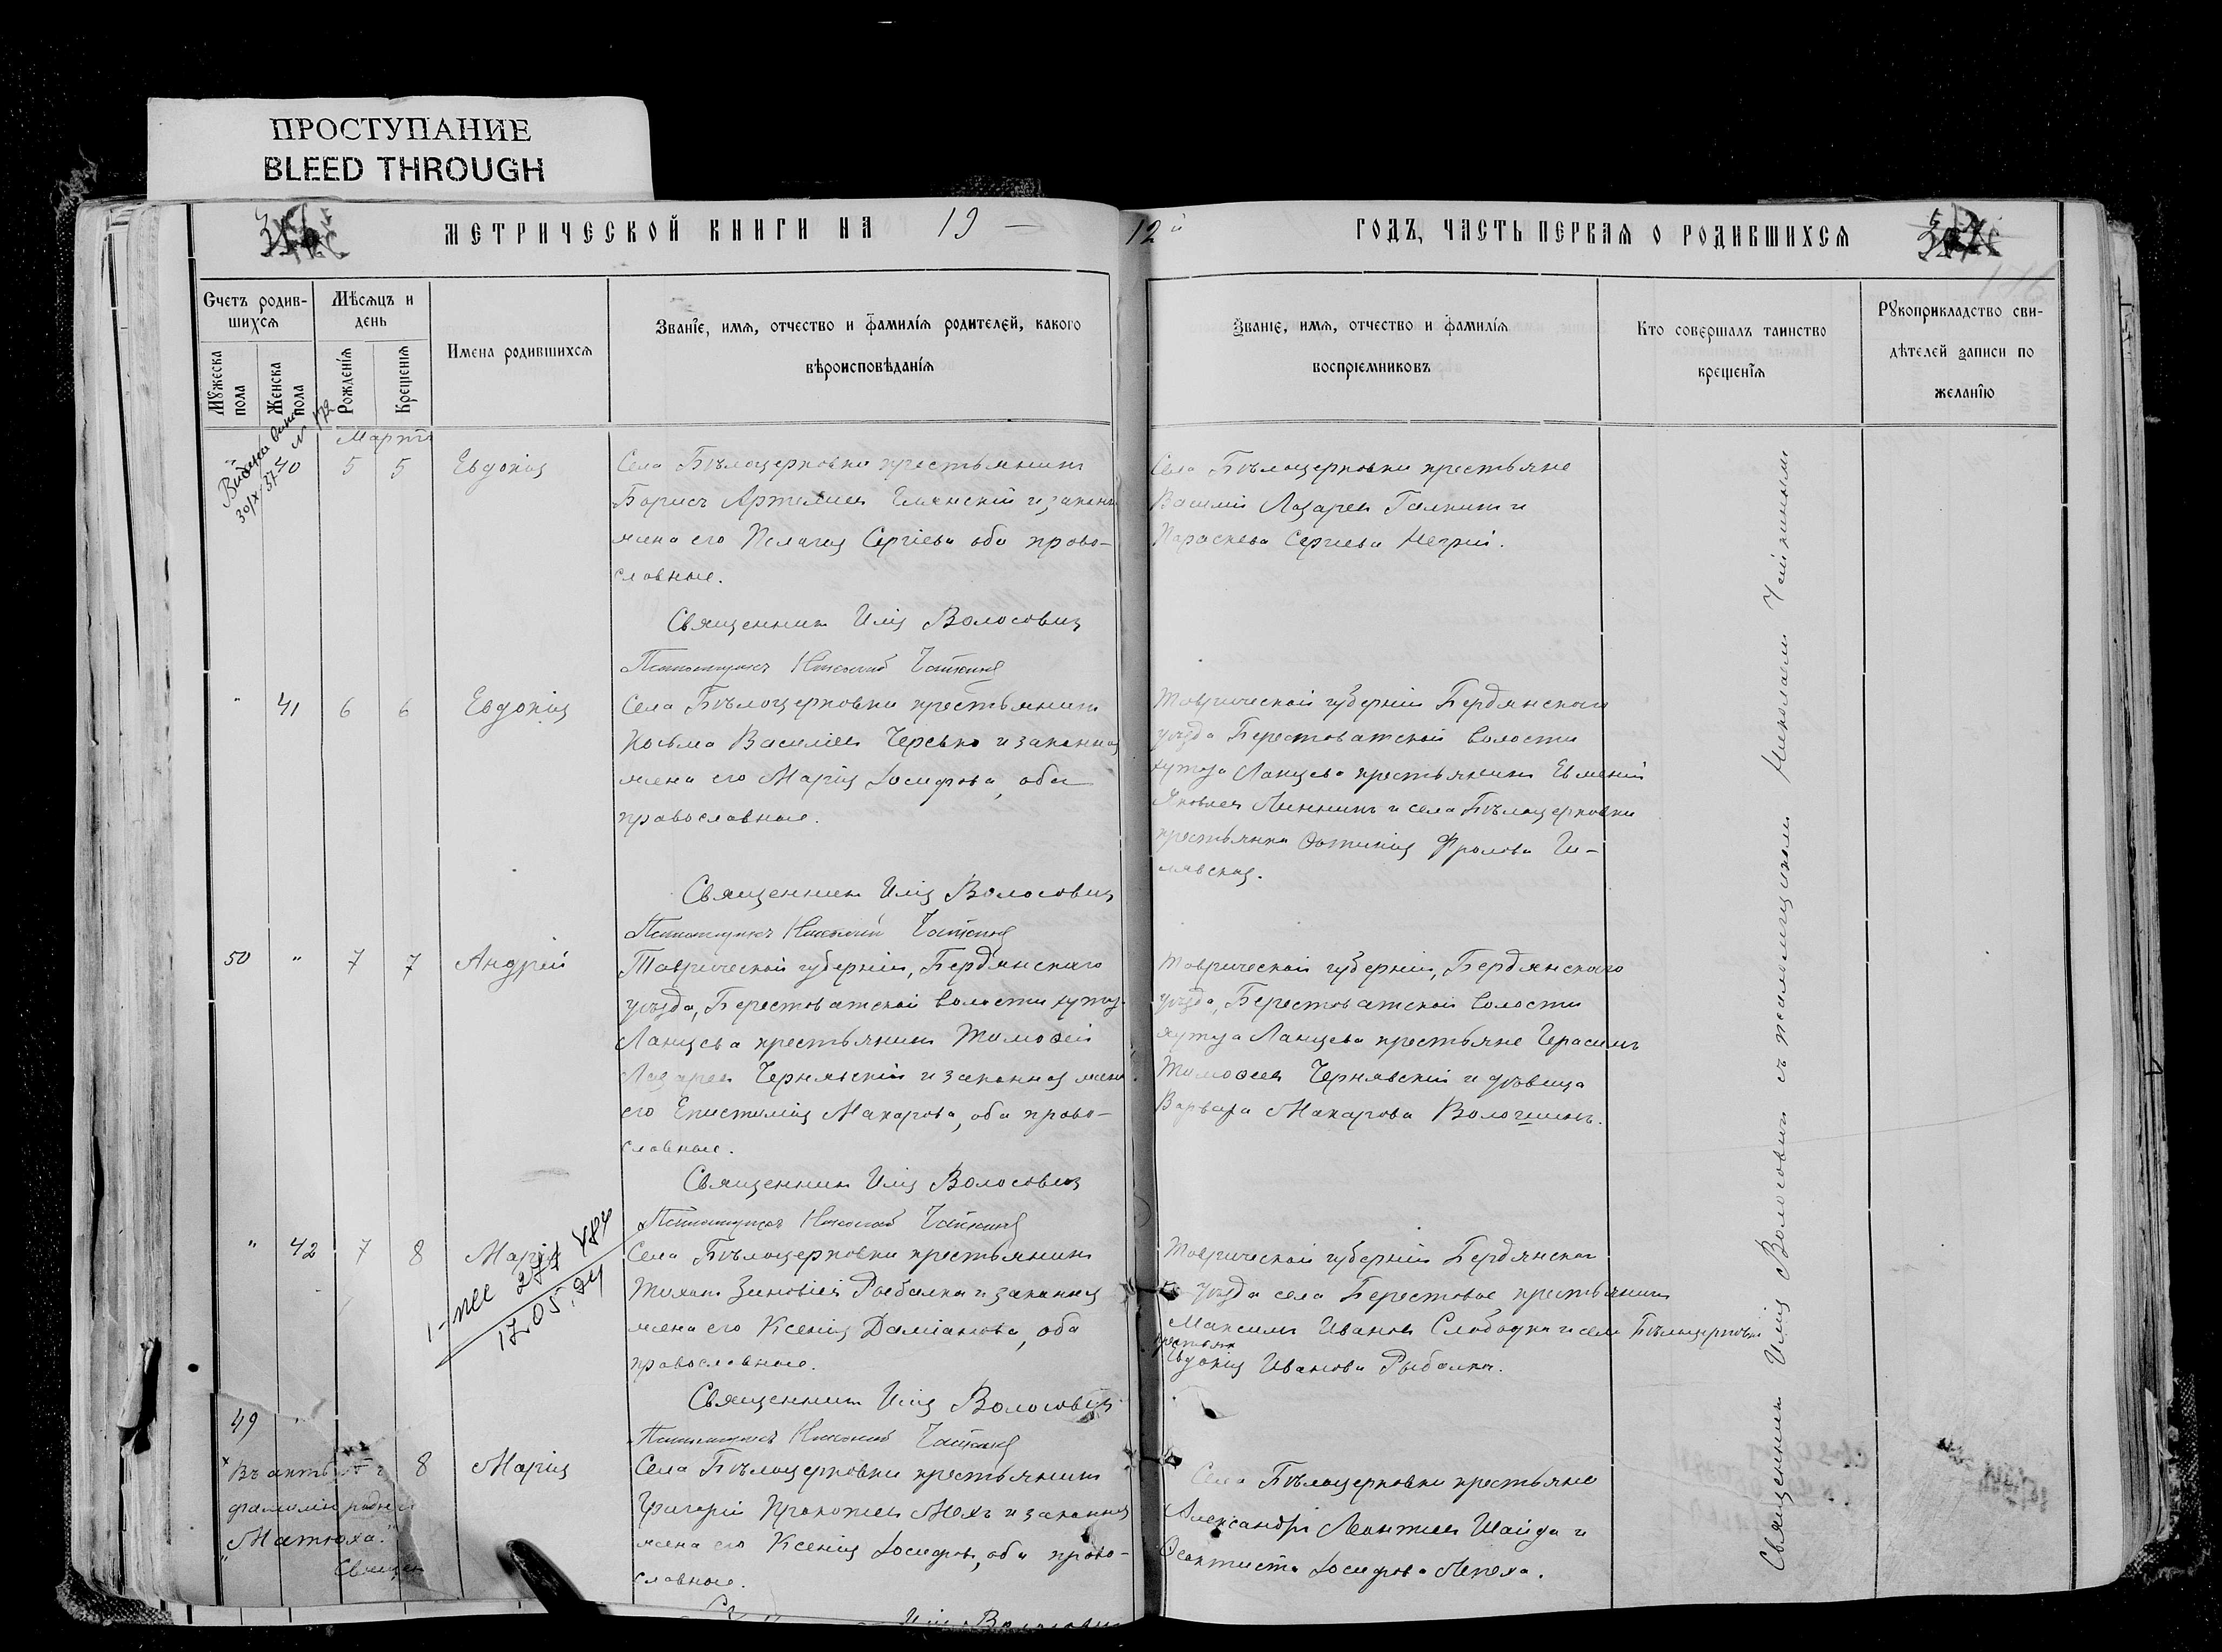 ПРОСТУПАНИЕ
BLEED THROUGH
МЕТРИЧЕСКОЙ КНИГИ НА 19 —
12й ГОДЪ, ЧАСТЬ ПЕРВАЯ О РОДИВШИХСЯ
Счетъ родив-
шихся
Мужеска пола
Женска пола
Мѣсяцъ и
день
Рожденія
Крещенія
Имена родившихся
Званіе, имя, отчество и фамилія родителей, какого
вѣроисповѣданія
Званіе, имя, отчество и фамилія
воспріемниковъ
Кто совершалъ таинство
крещенія
Рукоприкладство сви-
дѣтелей записи по
желанію
Мартъ
" 40 5 5 Евдокія
Села Бѣлоцерковки крестьянинъ
Борисъ Артемиевъ и законная
жена его Пелагія Сергіева оба право-
славные.
Священникъ Илія Волосовичъ
Псаломщикъ Николай
Села Бѣлоцерковки крестьяне
Василій Лазаревъ Галкинъ и
Параскева Сергиева Негрий.
" 41 6 6 Евдокія
Села Бѣлоцерковки крестьянинъ
Косьма Василіевъ и законная
жена его Марія Іосифова, оба
православные.
Священникъ Илія Волосовичъ
Псаломщикъ Николай
Таврической губерніи Бердянскаго
уѣзда Берестоватской волости
хутора Ланцева крестьянинъ Евмений
Яковлевъ Линникъ и села Бѣлоцерковки
крестьянка Фролова
50 " 7 7 Андрей
Таврической губерніи, Бердянскаго
уѣзда, Берестоватской волости хутора
Ланцева крестьянинъ Тимофей
Лазаревъ Чернявскій и законная жена
его Епистимія Макарова, оба право-
славные.
Священникъ Илія Волосовичъ
Псаломщикъ Николай
Таврической губерніи, Бердянскаго
уѣзда, Берестоватской волости
хутора Ланцева крестьяне Герасимъ
Тимофеевъ Чернявскій и дѣвица
Варвара Макарова Волошинъ.
" 42 7 8 Марія
17.05.94
Села Бѣлоцерковки крестьянинъ
Тихонъ Зиновіевъ Рыбалка и законная
жена его Ксенія Даміанова, оба
православные.
Священникъ Илія Волосовичъ
Псаломщикъ Николай
Таврической губерніи Бердянска-
го уѣзда села Берестовое крестьянинъ
Максимъ Ивановъ Слободянъ и села Бѣлоцерковки
крестьянка
Евдокія Иванова Рыбалка.
49
8 Марія
Въ актѣ
фамилія
"Матюха."
Священ
Села Бѣлоцерковки крестьянинъ
Григорій Прокопіевъ Мохъ и законная
жена его Ксенія Іосифова, оба право-
славные.
Илія Волосовичъ
Села Бѣлоцерковки крестьяне
Александръ Леонтиевъ Шайда и
Феоктиста Іосифова Лепеха.
Священникъ Илія Волосовичъ съ псаломщикомъ Николаемъ